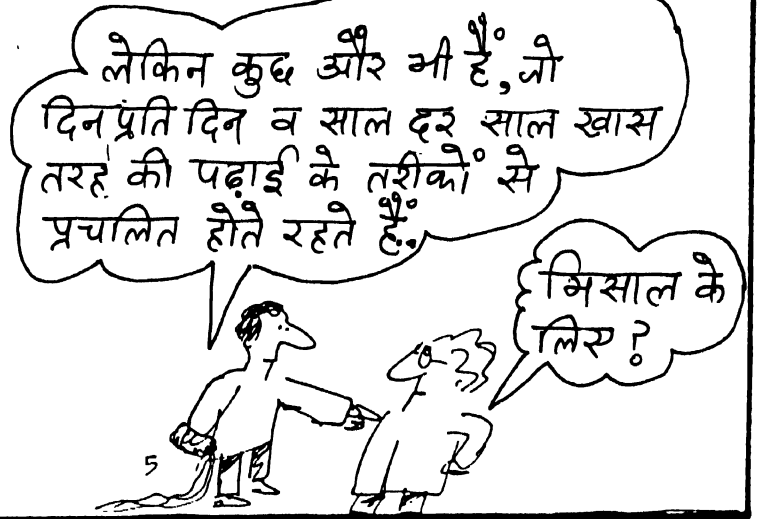 लेकिन कुछ और भी हैं, जो
दिन प्रति दिन व साल दर साल खास
तरह की पढ़ाई के तरीकों से
प्रचलित होते रहते हैं.
मिसाल के
लिए?
5